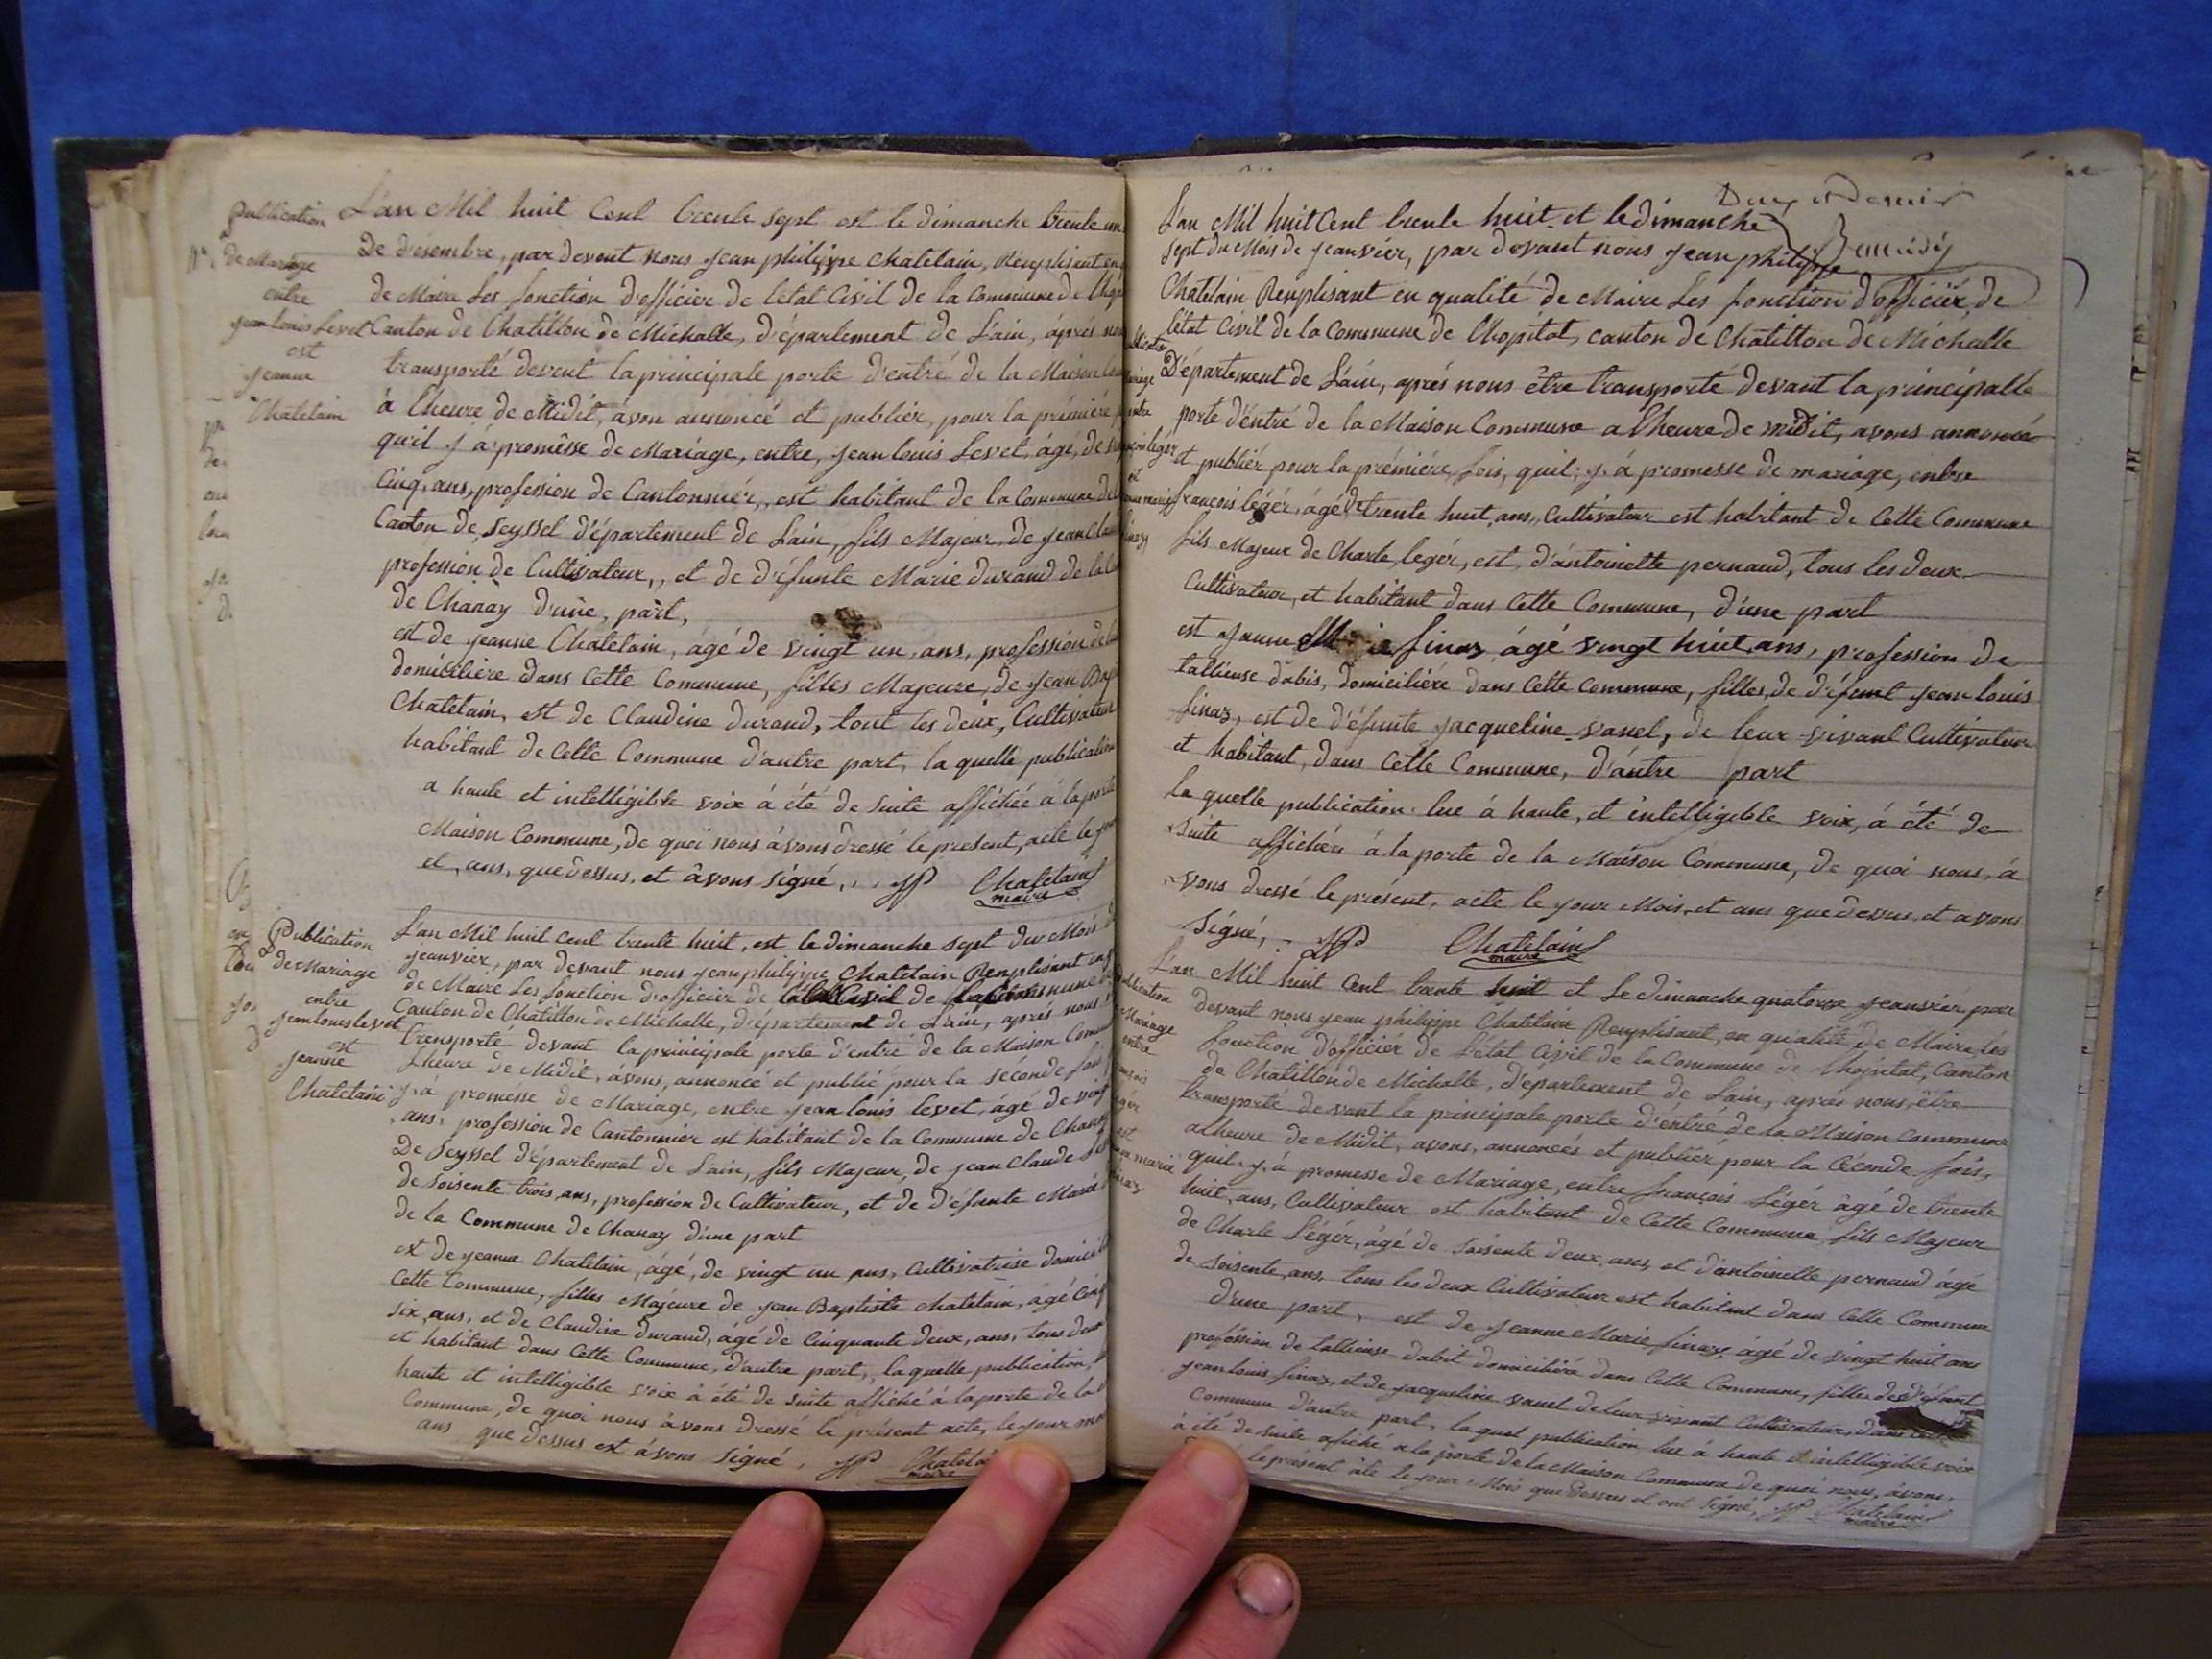 Publication
de Mariage
entre
Jean louis Levet
est
jeanne
Chatelain
L'an Mil huit Cent trente sept est le dimanche trente un
De désembre, par devent nous jean philippe chatelain, Renplisant en
de Maire Les fonction d'officier de létat Civil de la Commune de lhop
Canton de Chatillon de Michalle, d'épartement de Lain, áprés nou
transporté devent la principale porte d'entré de la Maison
à lheure de Midit, ávon annoncé et publiér, pour la prémiére
qu'il y á promêsse de Mariage, entre, jean louis Levet, ágé, de
Cinq, ans, profession de Cantonniér, est habitant de la Commune de
Canton de Seyssel d'épartement de Lain, fils Majeur, de jean Clau
profession de Cultivateur, et de d'éfunte Marie durand de la
de Chanay d'une, part,
est de jeanne Chatelain, ágé de vingt un, ans, profession de
domiciliére dans Cette Commune, filles Majeure, de jean Bap
Chatelain, est de Claudine durand, tout les deux, Cultivateur
habitant de Cette Commune d'autre part, la quelle publication
a haute et intelligible voix à été de suite affichée á la porte
Maison Commune, de quoi nous ávons dressé le present, acte le jour
et, ans, que dessus, et ávons signé, JP Chatelain
maire
Publication
de Mariage
entre
jean louis levet
est
jeanne
Chatelain
L'an Mil huit Cent trente huit, est le dimanche sept du Mois
jeanvier, par devant nous jean philippe Chatelain Renplisant
de Maire Les fonction d'officier de létat Civil de la Commune
Canton de Chatillon de Michalle, d'épartement de Lain, aprés nous
transporté devant la principale porte d'entré de la Maison Comm
Lheure de Midit, ávons, annoncé et publié pour la séconde fois
y, á promésse de Mariage, entre jean louis levet, ágé de vingt
ans, profession de Cantonnier est habitant de la Commune de Chanay
De Seyssel d'épartement de Lain, fils Majeur, de jean Claude
de soisente trois, ans, profession de Cultivateur, et de d'éfunte Marie
de la Commune de Chanay d'une part
est de jeanne Chatelain, ágé, de vingt un ans, Cultivatrise domici
Cette Commune, filles Majeure de jean Baptiste Chatelain, ágé Cinq
six, ans, et de Claudine durand, ágé de Cinquante deux, ans, tous deux
et habitant dans Cette Commune, d'autre part, laquelle publication,
haute et intelligible voix à été de suite affiché á la porte de la
Commune, de quoi nous ávons dressé le présent acte, le jour
ans que dessus est ávons signé, JP Chatelain
maire
L'an Mil huit Cent trente huit et le dimanche
sept du Mois de jeanviér, par devant nous jean philippe
Chatelain Renplisant en qualité de Maire Les fonction d'officiér, de
létat Civil de la Commune de Lhopital, canton de Chatillon de Michalle
D'épartement de Lain, aprés nous être transporté devant la principalle
porte d'entré de la Maison Commune a lheure de midit, avons annoncé
et publiér pour la prémiére, fois, quil, y. á promesse de mariage, entre
françois légér, ágé de trente huit, ans, Cultivateur est habitant de Cette Commune
fils Majeur de Charle, legér, est, d'ántoinette pernaud, tous les deux
Cultivateur, et habitant dans Cette Commune, d'une part
est jeanne Marie finaz ágé vingt huit, ans, profession de
tallieuse dabis, domiciliére dans Cette Commune, filles, de d'éfunt jean louis
finaz, est de d'éfunte jacqueline vanel, de leur vivant Cultivateur
et habitant, dans Cette Commune, d'ántre part
la quelle publication lue à haute, et intelligible voix, à été de
suite affichée á la porte de la Maison Commune, de quoi nous, á
vons dressé le présent, acte le jour Mois, et ans que dessus, et avons
Signé, JP Chatelain
maire
L'an Mil huit Cent trente huit et Le dimanche quatorze jeanviér par
devant nous jean philippe Chatelain Renplisant, en qualité de Maire, les
fonction d'officiér de L'état Civil de la Commune de lhopital, Canton
de Chatillon de Michalle, d'épartement de Lain, aprés nous, être
transporté devant la principale porte d'entré de la Maison Commune
alheure de Midit, avons, annoncés et publiér pour la séconde fois,
quil. y. á promesse de Mariage, entre françois Légér ágé de trente
huit, ans, Cultivateur est habitant de Cette Commune fils Majeur
de Charle Légér, ágé de soisente deux, ans, et d'antoinette pernaud ágé
de soisente, ans, tous les deux Cultivateur est habitant dans Cette Commune
d'une part, est de jeanne Marie finaz ágé de vingt huit ans
proféssion de tallieuse dabit domiciliére dans Cette Commune, filles de d'éfunt
jean louis finaz, et de jacqueline vanel de leur vivant Cultivateur, dans
Commune d'autre part, la quel publication lue à haute et intelligible voix
à été de suite afiché a la porte de la Maison Commune de quoi nous, ávons,
le present áte Le jour Mois que dessus et ont Signé, JP Chatelain
maire